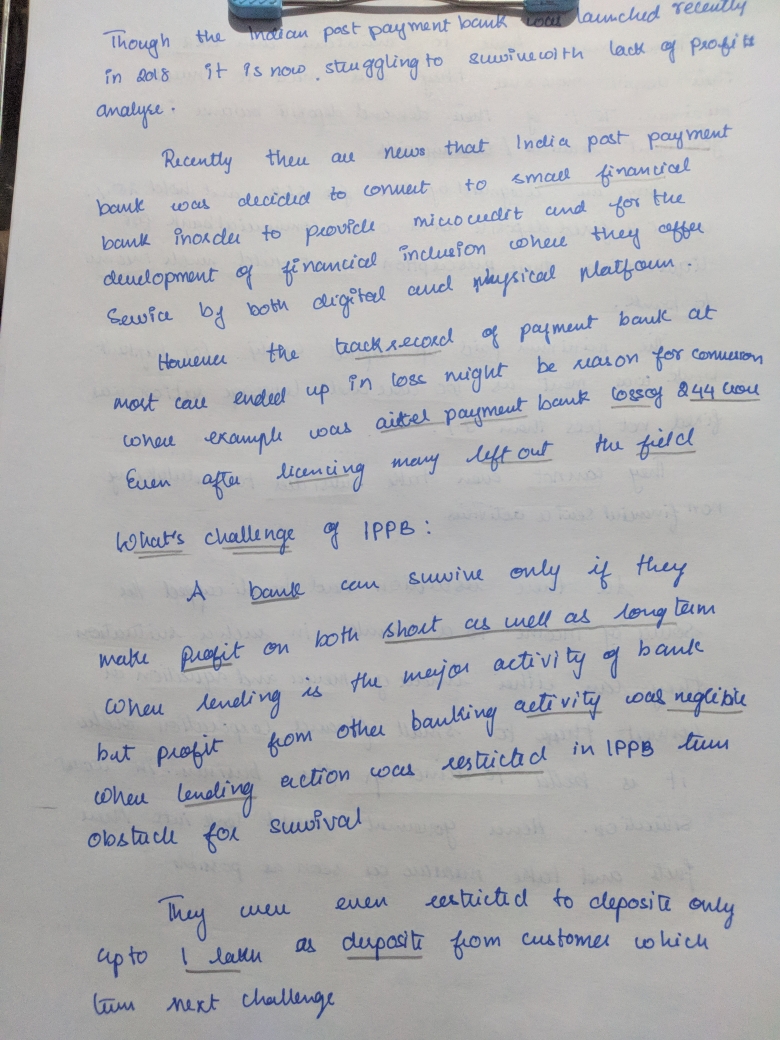 Though the Indian post payment bank was launched recently
in 2018 it is now struggling to survive with lack of profits
analyse.
Recently there are news that India post payment
bank was decided to convert to small financial
bank inorder to provide microcredit and for the
development of financial inclusion where they offer
Service by both digital and physical platform
However the track record of payment bank at
most case ended up in loss might be reason for conversion
where example was airtel payment bank loss of 244 crore
Even after licencing many left out the field
What's challenge of IPPB :
A bank can survive only if they
make profit on both short as well as long term
where lending is the major activity of bank
but profit from other banking activity was neglible
where lending action was restricted in IPPB turn
obstacle for survival
They were even restricted to deposite only
upto 1 lakh as deposite from customer which
turn next challenge